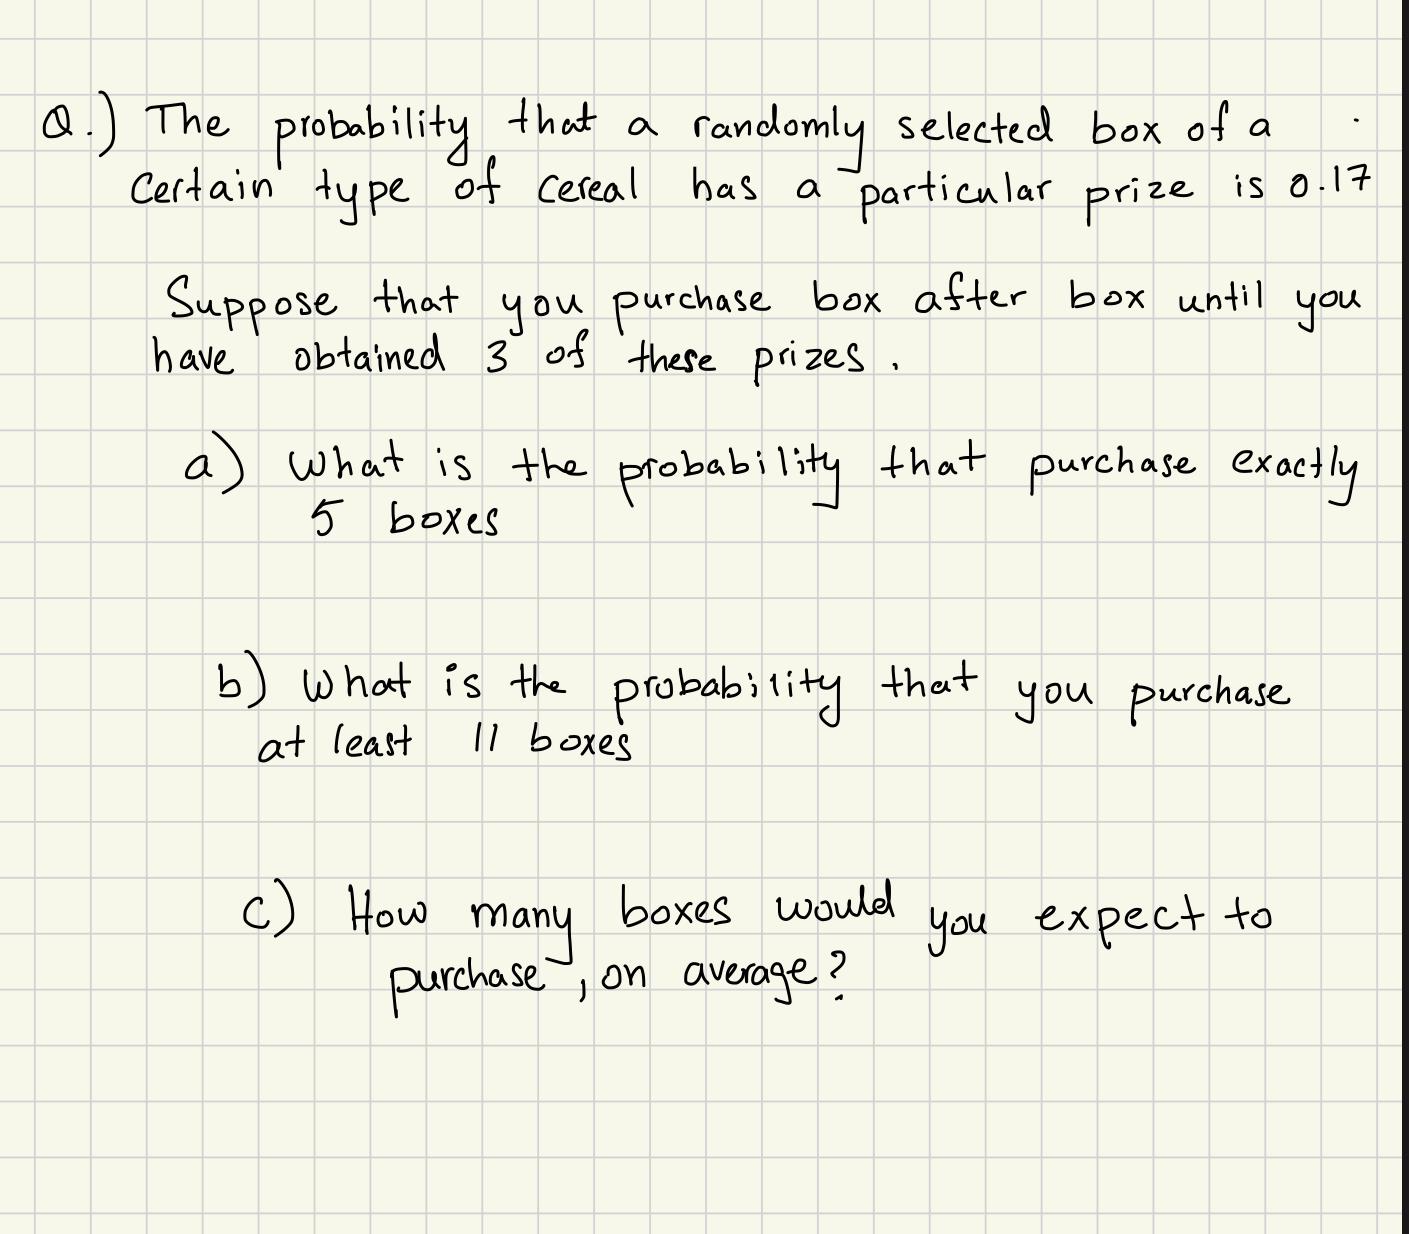 Q.) The probability that a randomly selected box of a
certain type of cereal has a particular prize is 0.17
Suppose that you purchase box after box until you
have obtained 3 of these prizes.
a) What is the probability that purchase exactly
5 boxes
b) What is the probability that you purchase
at least 11 boxes
c) How many boxes would you expect to
purchase, on average?